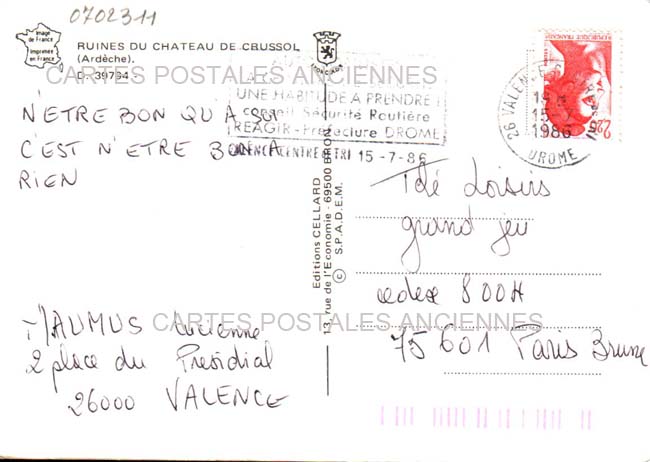 0702311
Image de France
Imprimée en France
RUINES DU CHATEAU DE CRUSSOL
(Ardèche).
D. 39764
CARTES POSTALES ANCIENNES
UNE HABITUDE A PRENDRE !
conseil Sécurité Routière
REAGIR - Préfecture DROME
VALENCE CENTRE TRI 15-7-86
26 VALENCE
15
1986
DROME
REPUBLIQUE FRANCAISE
2,20
N'ETRE BON QU'A SOI
C'EST N'ETRE BON A
RIEN
Editions CELLARD
13, rue de l'Economie - 69500 BRON
© S.P.A.D.E.M.
Télé Loisirs
grand jeu
cedex 800H
75601 Paris Brune
CARTES POSTALES ANCIENNES
MAUMUS Lucienne
2 place du Présidial
26000 VALENCE